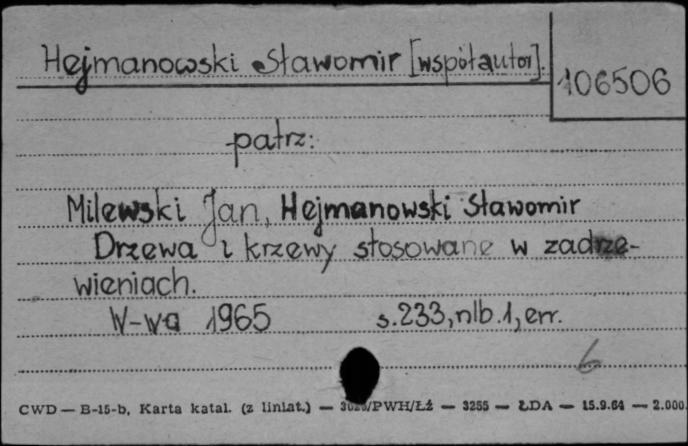 Hejmanowski Sławomir [współautor].
106506
patrz:
Milewski Jan, Hejmanowski Sławomir
Drzewa i krzewy stosowane w zadrze-
wieniach.
W-wa 1965 s.233, nlb.1, err.
6
CWD — B-15-b, Karta katal. (z liniat.) — /PWH/Łż — 3255 — ŁDA — 15.9.64 — 2.000.